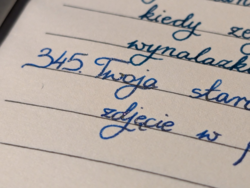 kiedy ze
wynalazk
345. Twoja stan
zdjęcie w